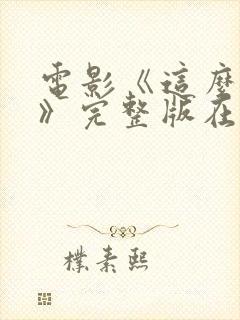 電影《這麼
》完整版在
樸素熙